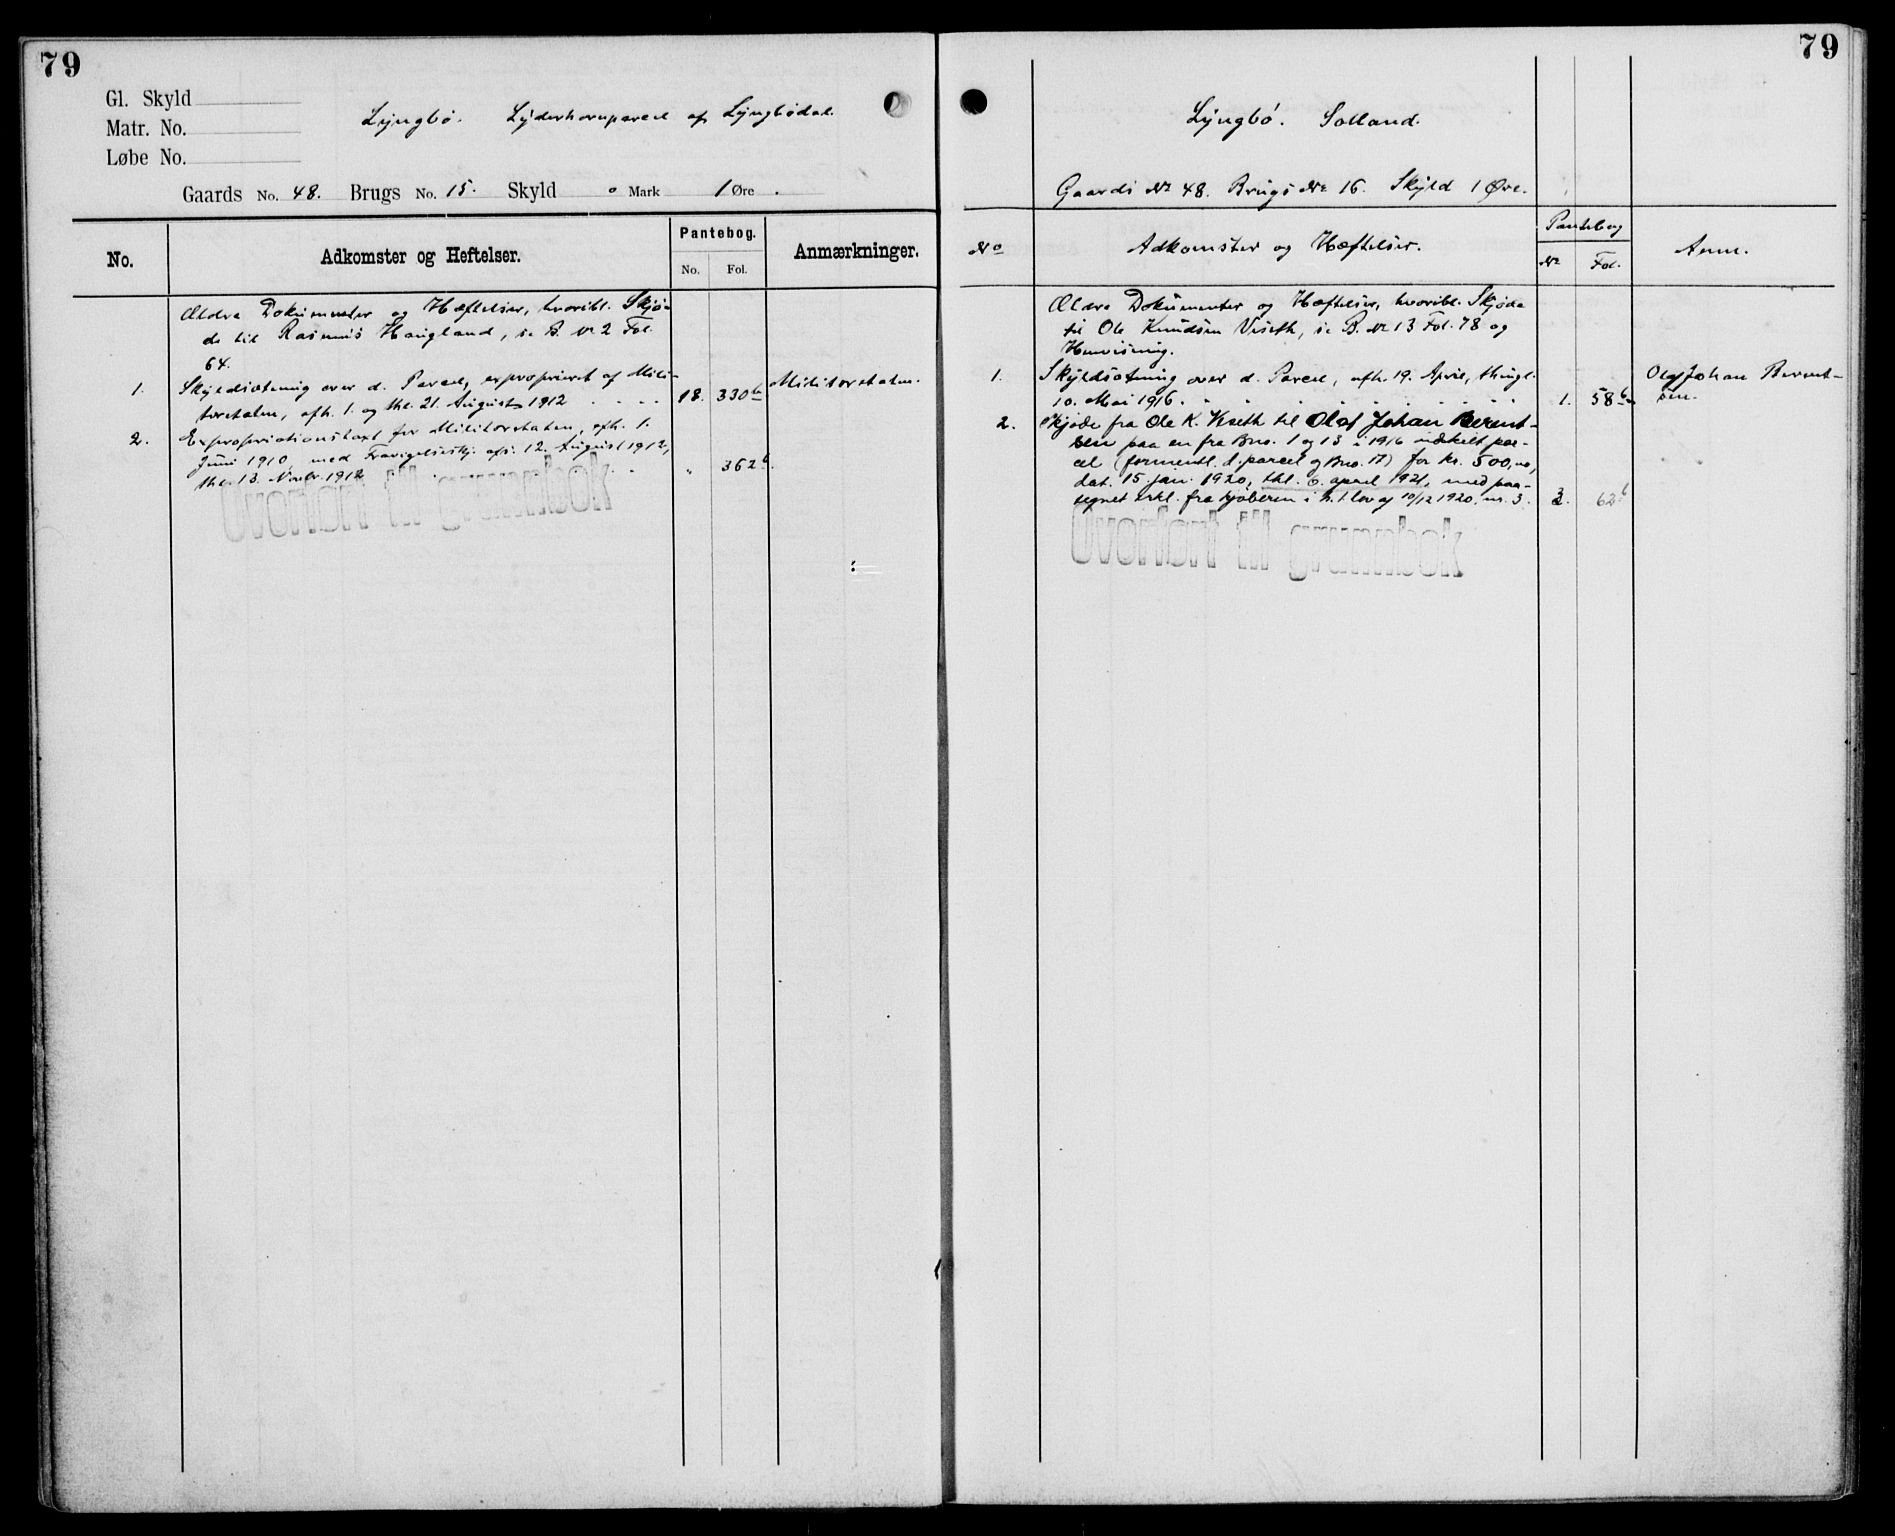 79
Gl. Skyld
Matr. No.
Løbe No.
Lyngbö. Lyderhornparcel af Lyngbödal.
Gaards No. 48. Brugs No. 15. Skyld 0 Mark 1 Øre.
No. Adkomster og Heftelser. Pantebog. No. Fol. Anmærkninger.
Ældre Dokumenter og Hæftelser, hvoribl. Skjö-
de til Rasmus Haugland, se B. No 2 Fol.
64.
1. Skyldsætning over d. Parcel, exproprieret af Mili- Militæretaten.
tæretaten, afh. 1. og thl. 21. August 1912 . . . . 18. 330b
2. Expropriationstaxt for Militæretaten, afh. 1.
Juni 1910 med Fravigelseskj. afs. 12. August 1912,
thl. 13. Novbr. 1912 . . " 362b.
Overført til grunnbok
79
Lyngbö. Solland.
Gaards No 48. Brugs No 16. Skyld 1 Øre.
No Adkomster og Hæftelser. Pantebog No Fol. Anm.
Ældre Dokumenter og Hæftelser, hvoribl. Skjøde
til Ole Knudsen Viseth, se B. No 13 Fol. 78 og
Henvisning.
1. Skyldsætning over d. Parcel, afh. 19. April, thingl. Olaf Johan Berent-
10. Mai 1916. . . . . . . . . 1. 58b sen.
2. Skjøde fra Ole K. Viseth til Olaf Johan Berent-
sen paa en fra Bno. 1 og 13 i 1916 utskilt par-
cel (formentl. d. parcel og Bno. 17) for kr. 500,00,
dat. 15. jan. 1920, thl. 6. april 1921, med paa-
tegnet erkl. fra kjøberen i h. t. lov af 10/12 1920. nr. 3. 3. 62b
Overført til grunnbok